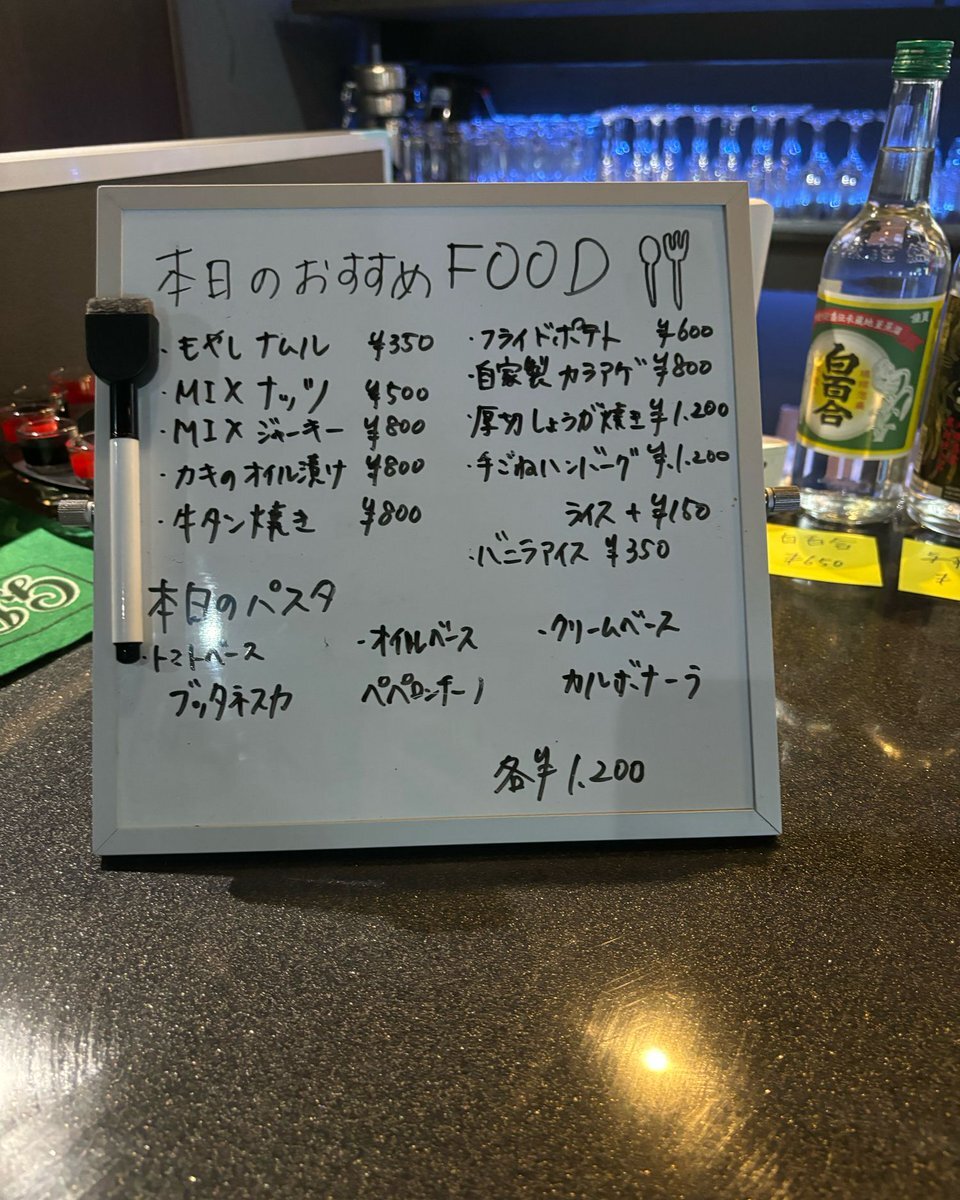 本日のおすすめ FOOD
・もやしナムル ¥350
・MIX ナッツ ¥500
・MIX ジャーキー ¥800
・カキのオイル漬け ¥800
・牛タン焼き ¥800
・フライドポテト ¥600
・自家製カラアゲ ¥800
・厚切しょうが焼き ¥1.200
・手ごねハンバーグ ¥.1.200
ライス + ¥150
・バニラアイス ¥350
本日のパスタ
・トマトベース
プッタネスカ
・オイルベース
ペペロンチーノ
・クリームベース
カルボナーラ
各¥1.200
白百合
白百合
¥650